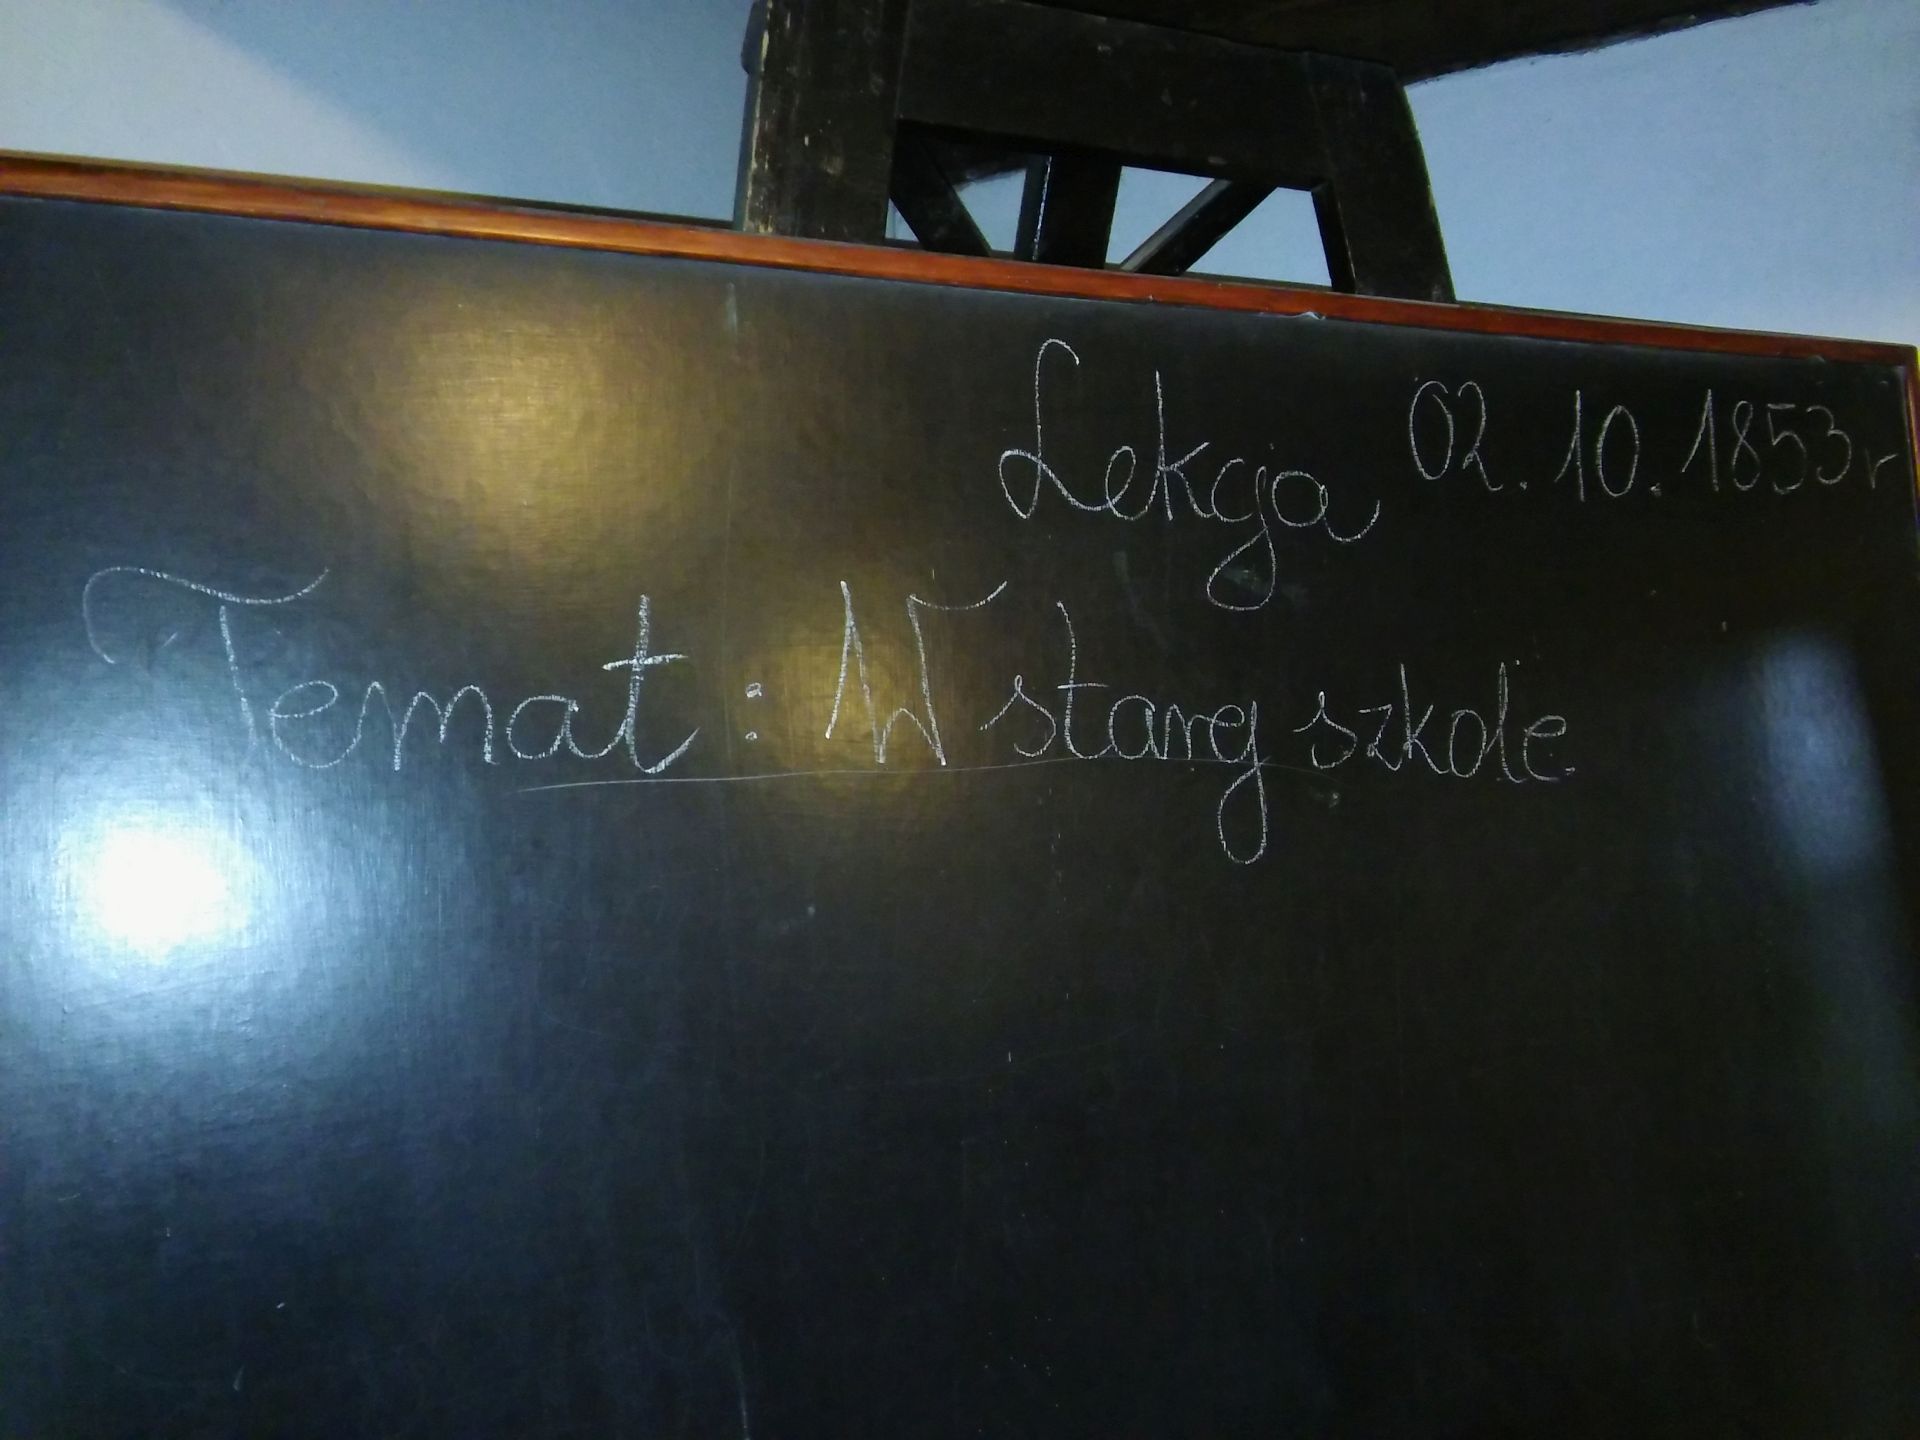 Lekcja 02.10.1853r
Temat: W starej szkole.